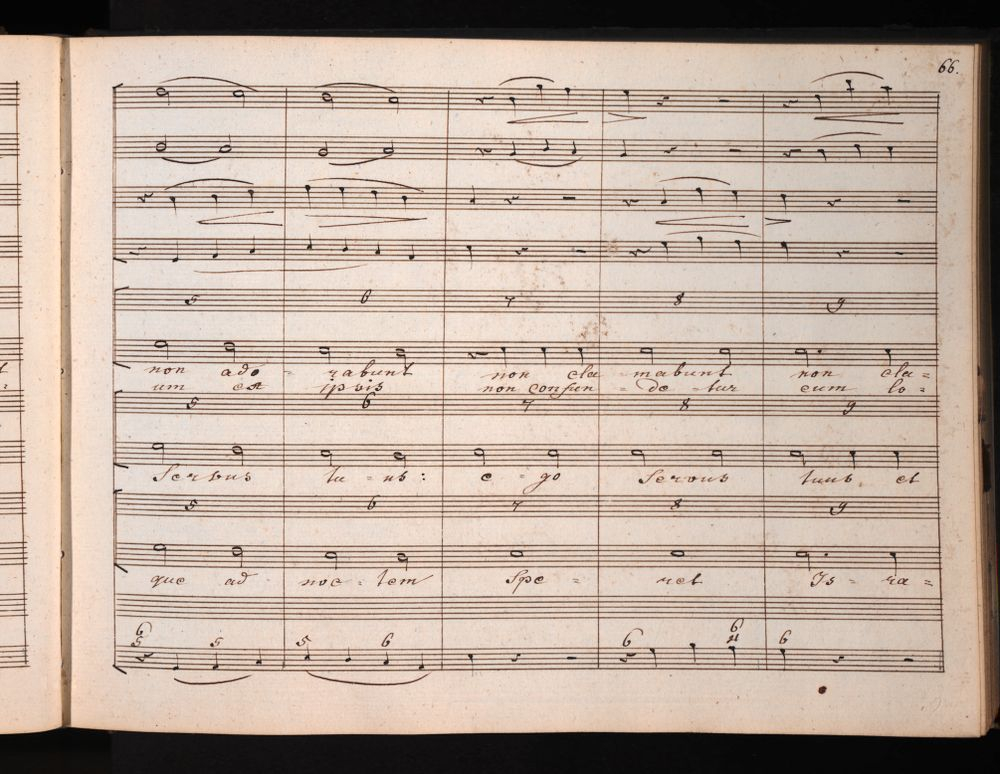 66.
5 6 7 8 9
non ado = rabunt non cla = mabunt non cla =
um ipsis non confun = de = tur cum lo =
5 6 7 8 9
Servus tu = us : e = go Servus tuus et
5 6 7 8 9
que ad noc = tem Spe = ret Is = ra =
6 6
5 5 5 6 6 4 6